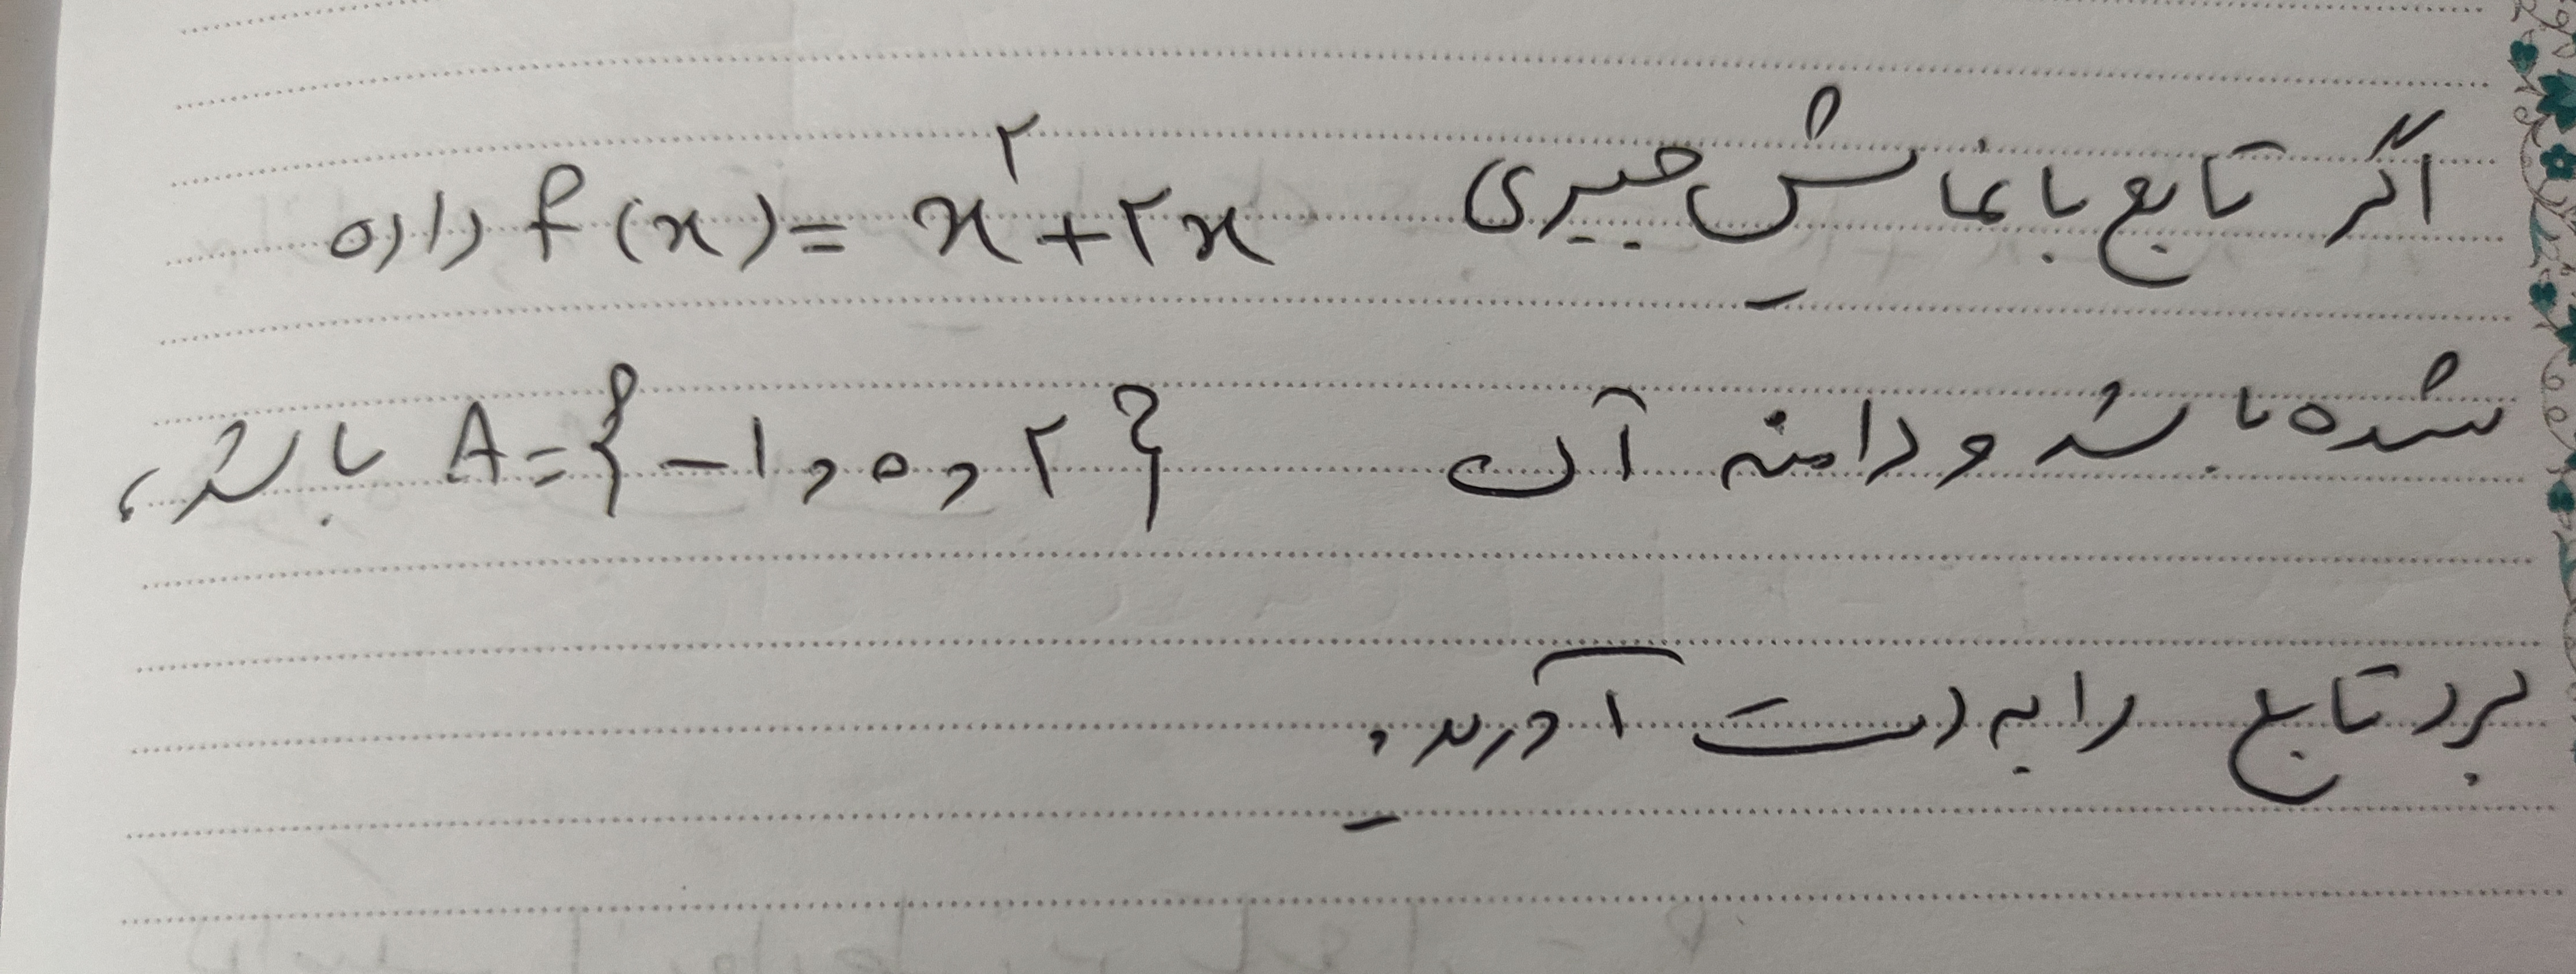 اگر تابع با نمایش جبری f(x) = x^۲ + ۲x داده
شده باشد و دامنه آن A = {-۱, ۰, ۲} باشد،
برد تابع را به دست آورید.